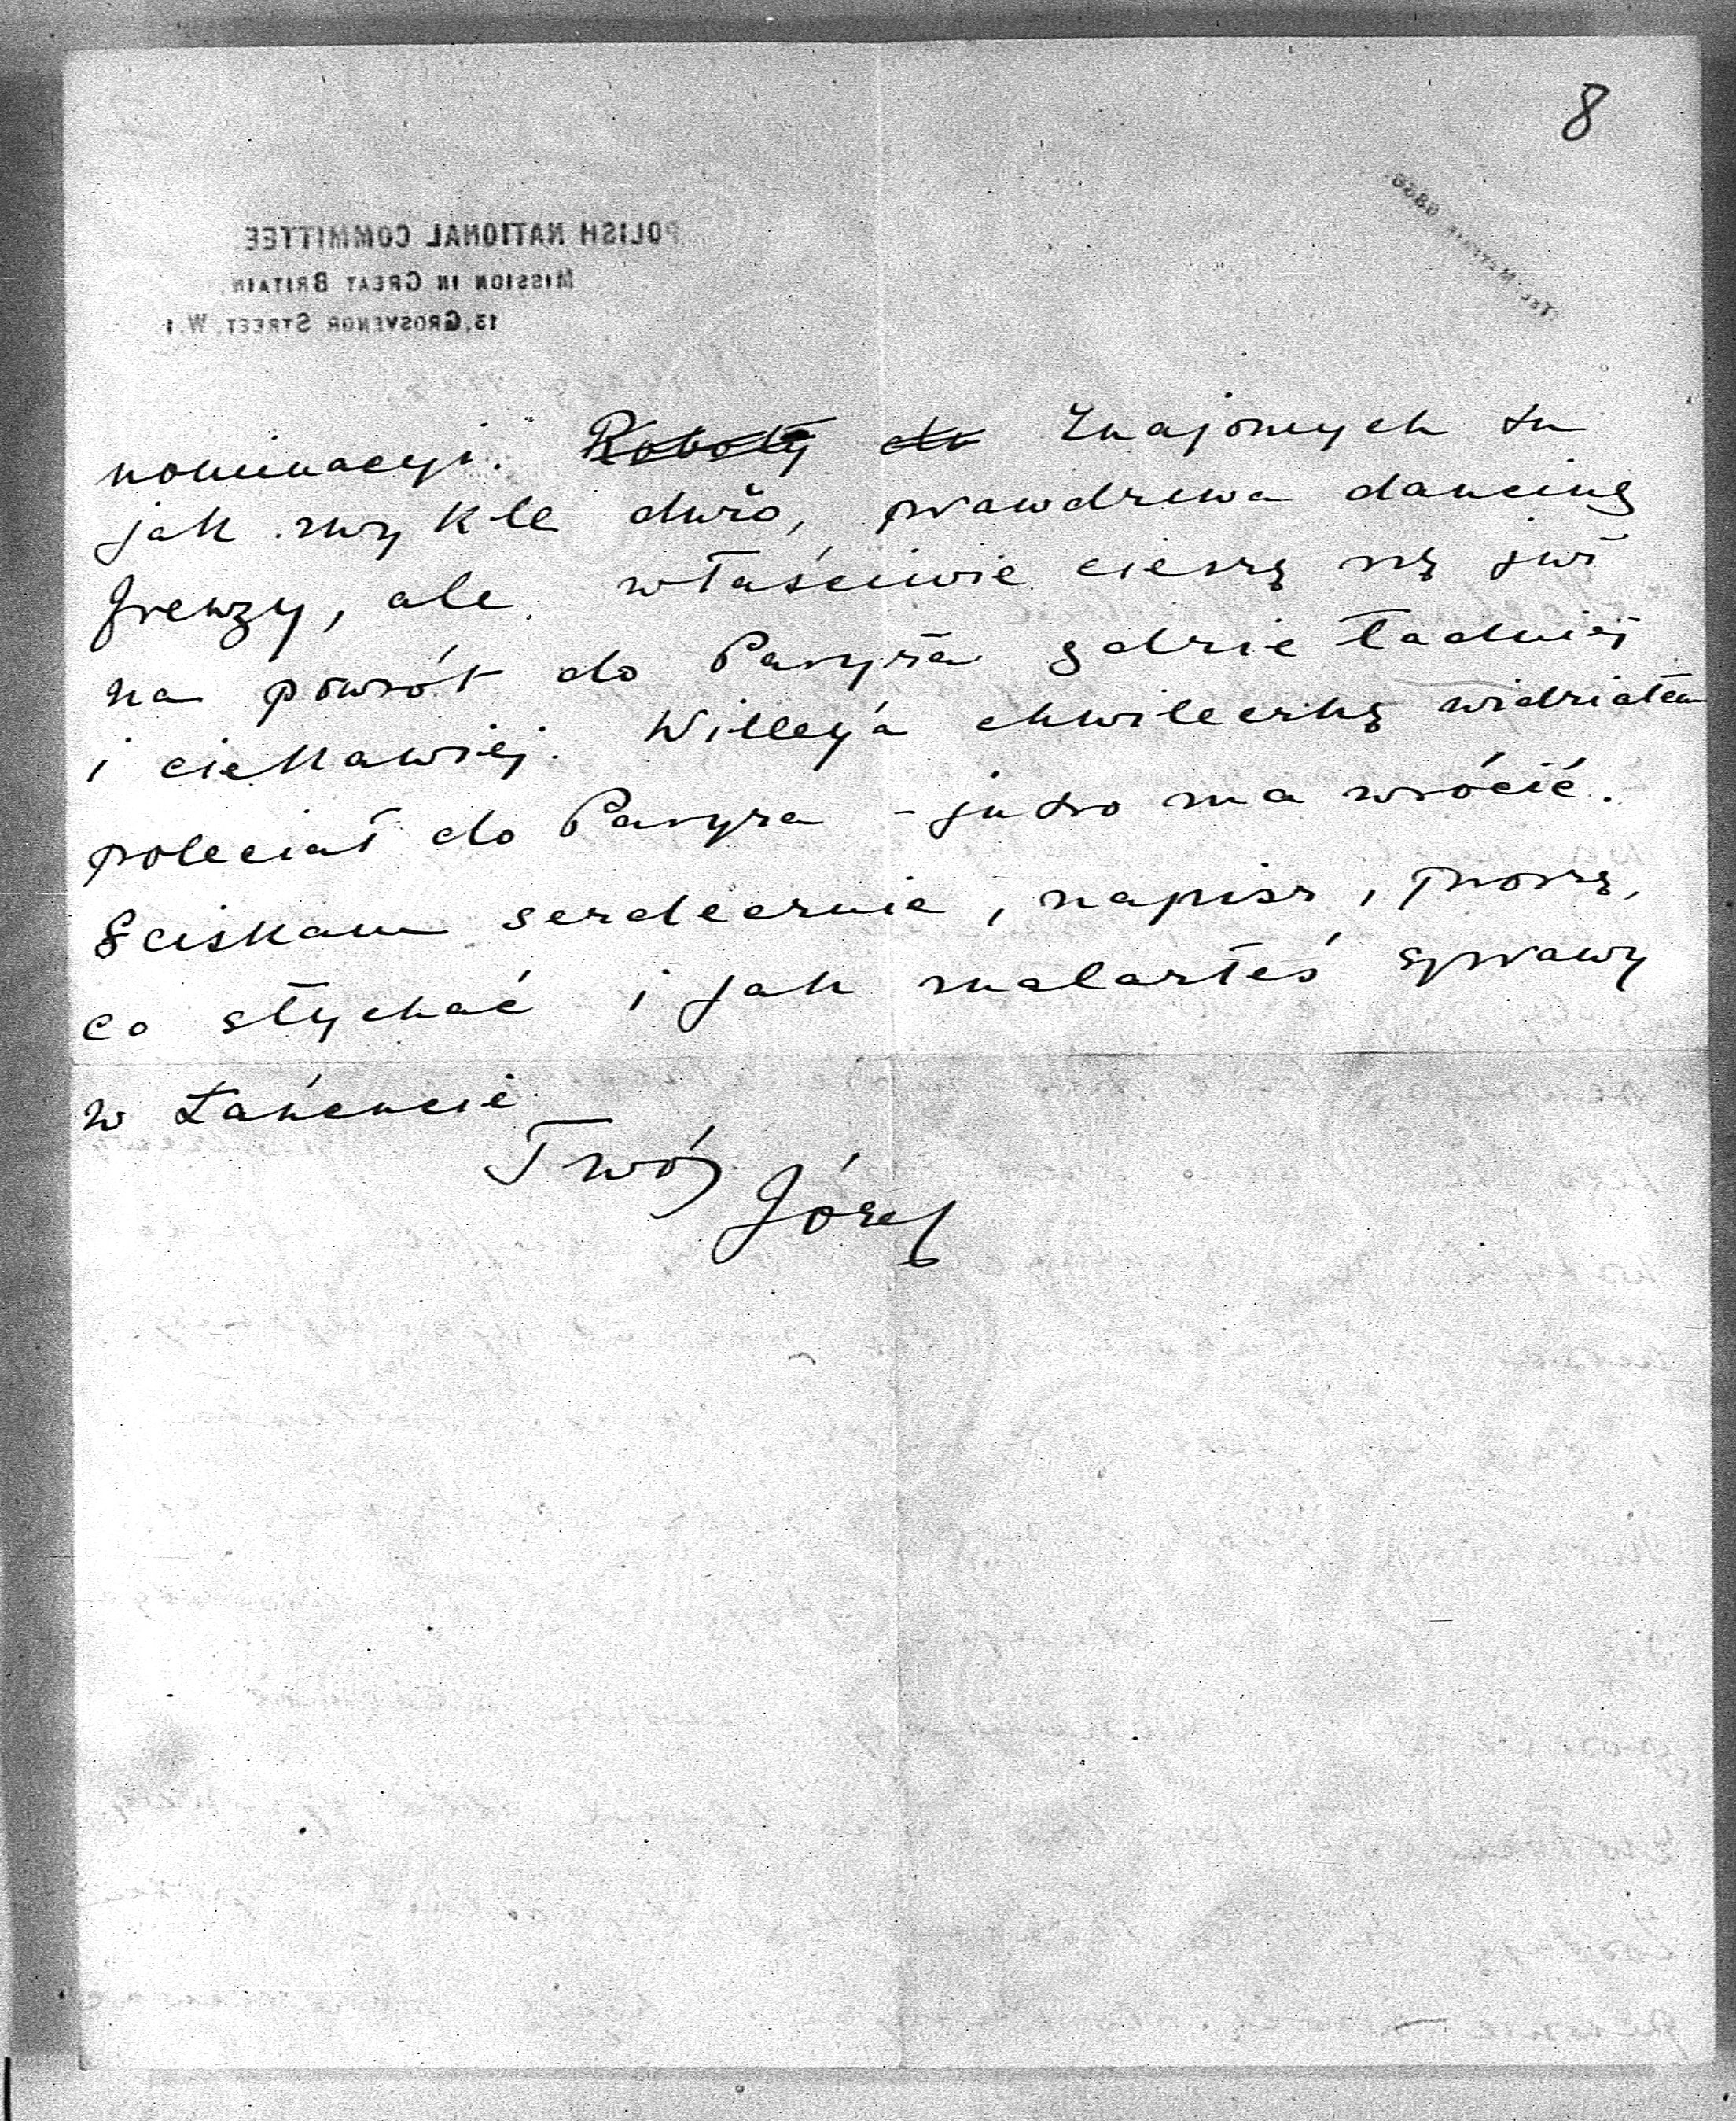 8
POLISH NATIONAL COMMITTEE
MISSION IN GREAT BRITAIN
13, GROSVENOR STREET, W.1
TEL: MAYFAIR 6866.
nominacyi. Roboty du Znajomych tu
jak zwykle dużo, prawdziwa dancing
frenzy, ale właściwie cieszę się już
na powrót do Paryża gdzie ładniej
i ciekawiej. Willey'a chwileczkę widziałem
poleciał do Paryża – jutro ma wrócić.
Ściskam serdecznie, napisz, proszę,
co słychać i jak znalazłeś sprawy
w Łańcucie.
Twój
Józef